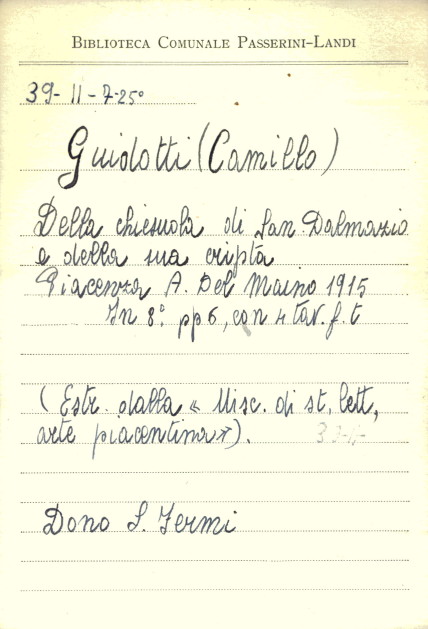 BIBLIOTECA COMUNALE PASSERINI-LANDI
39- II - 7-25°
Guidotti (Camillo)
Della chiesuola di San Dalmazio
e della sua cripta
Piacenza A. Del Maino 1915
In 8° pp 6, con 4 tav. f. t
( Estr. dalla « Misc. di st. lett,
arte piacentina »).
Dono S. Fermi